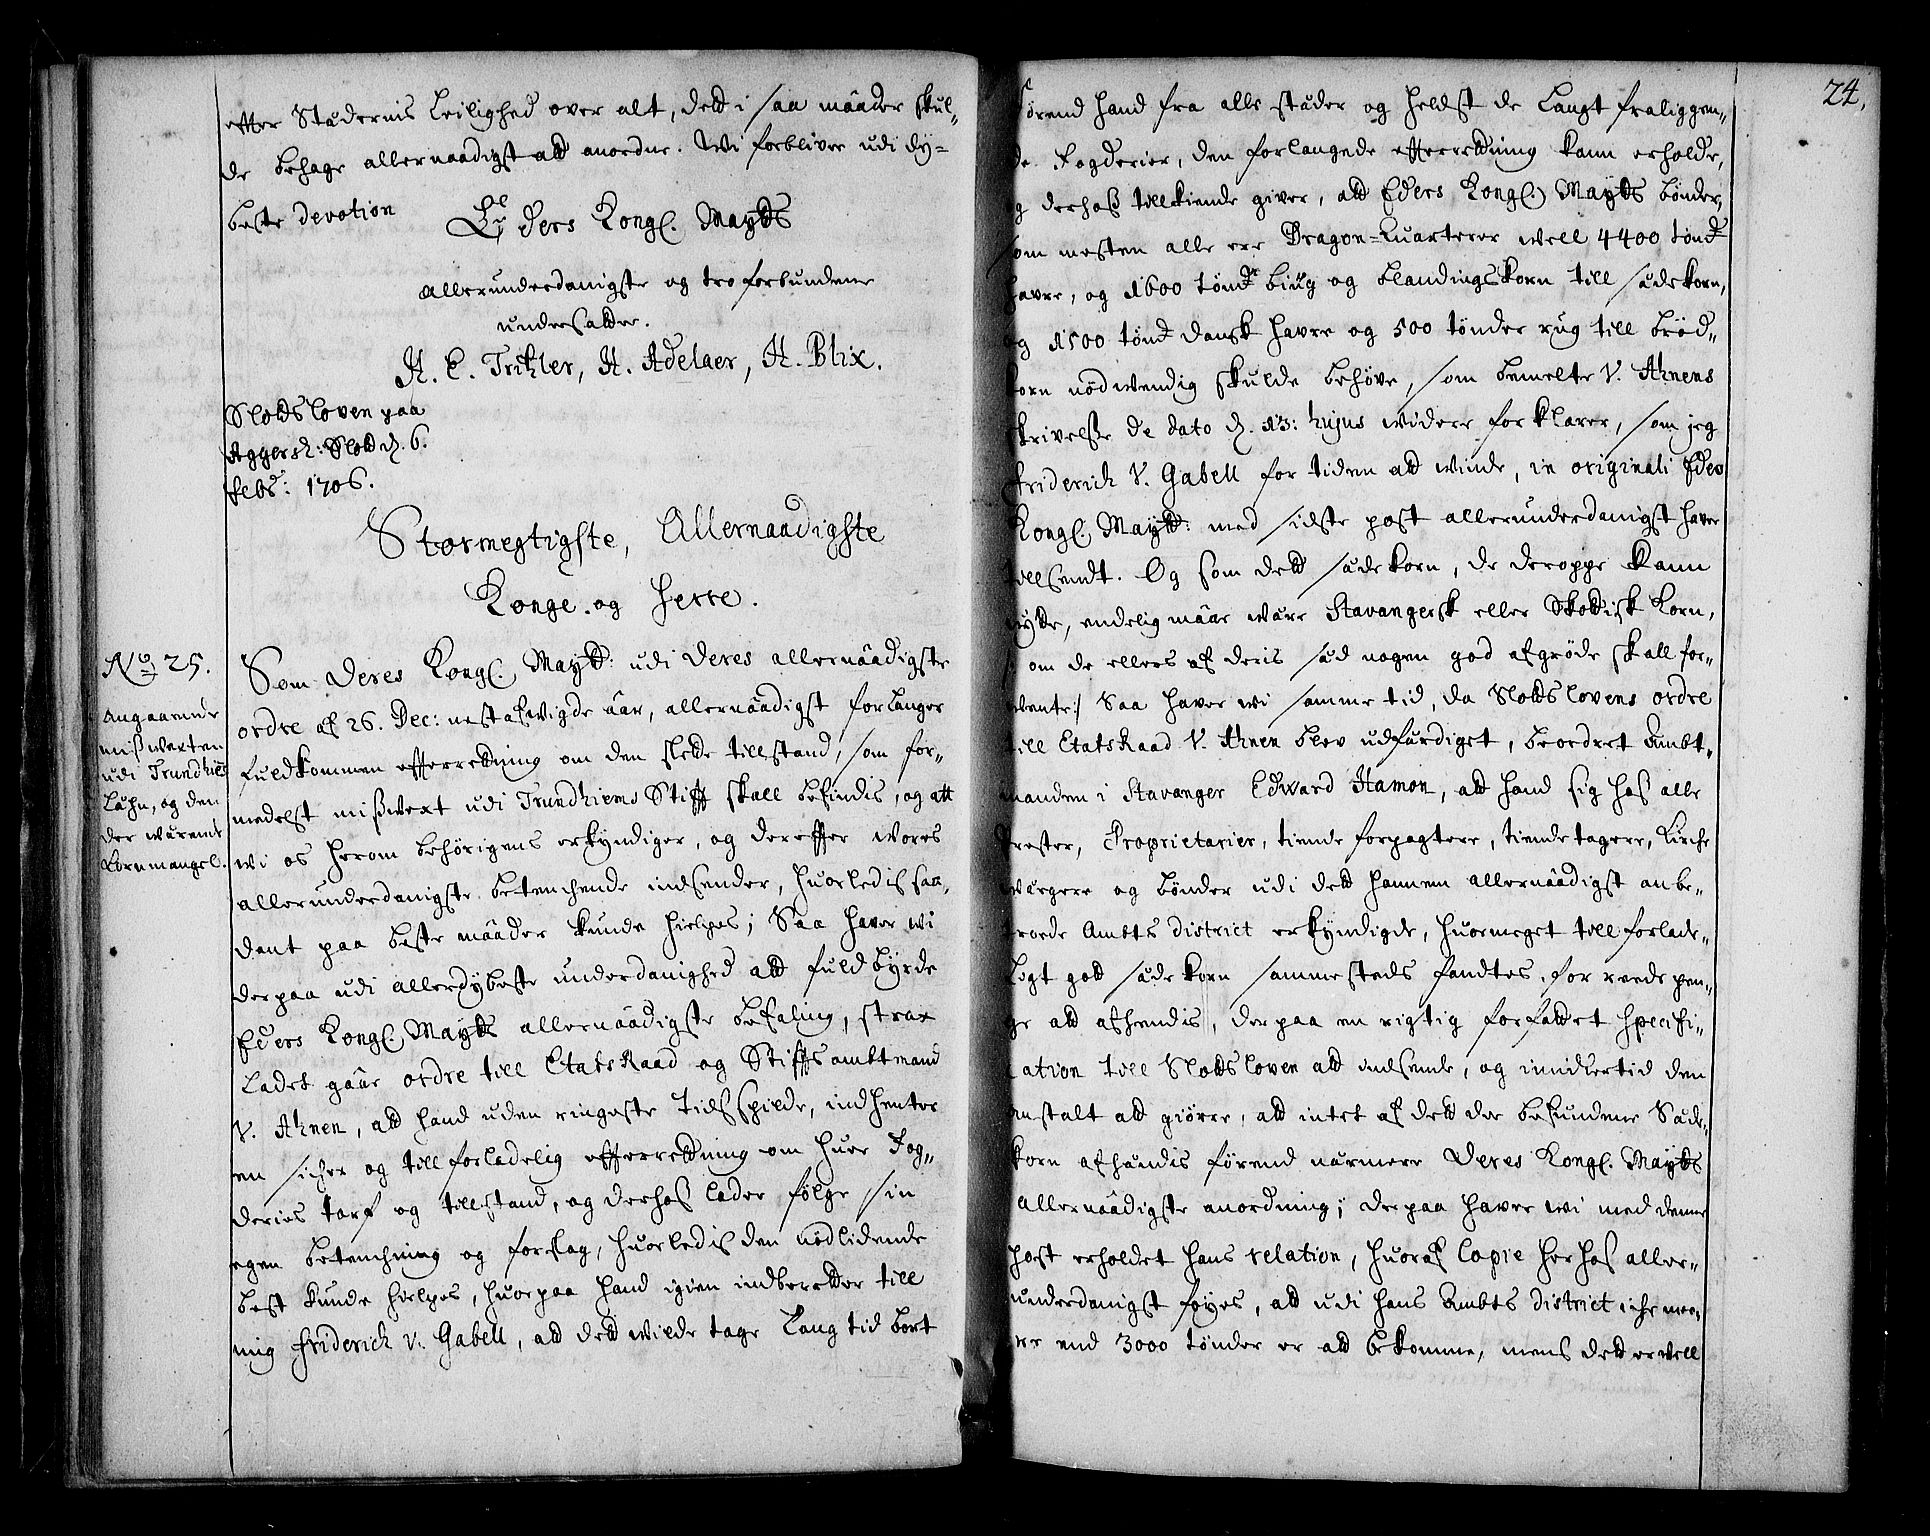 efter Stædernis Leilighed over alt, dett i saa mâader skul-
de behage allernaadigst att anordne. Wi forblive udi dy-
beste devotion
Eders Kongl. Maytts
Allerunderdanigste og tro forbundene
undersatter.
H. C. Tritzler, H. Adelaer, H. Blix.
Slotsloven paa
Aggersh: Slott d. 6.
Febr: 1706.
Stormegtigste, Allernaadigste
Konge og Herre.
No 25.
Angaaende
misvexten
udi Trundhiems
Læhn, og den
der værende
Kornmangel.
Som Deres Kongl. Maytt: udi Deres allernâadigste
ordre af 26. Dec: nest afvigde âar, allernâadigst forlanger
fuldkommen efterrettning om den slette tillstand, som for-
medelst misvext udi Trundhiems Stifft skall befindis, og att
wi os herom behörigens erkyndiger, og derefter vores
allerunderdanigste betenchende indsender, huorledis saa-
dant paa beste mâader kunde hielpes; Saa haver wi
derpaa udi allerdybeste underdanighed att fuldbyrde
Eders Kongl. Maytts allernâadigste befaling, strax
ladet gâae ordre till EtatsRaad og Stifftsambtmand
V. Ahnen, att hand uden ringeste Tids spilde, indhenter
en sicher og tillforladelig efterrettning om huer Fog-
deries tarf og tillstand, og derhos lader følge sin
egen betenchning og forslag, huorledis den nödlidende
best kunde hielpes, huorpaa hand igien indberetter till
mig Friderich v. Gabell, att dett wilde tage Lang tid bort
24.
förend hand fra alle stæder og heldst de Langt fraliggen-
de Fogderier, den forlangede efterrettning kann erholde,
og derhos tillkiende giver, att Eders Kongl. Maytts bönder,
som mesten alle ere Dragon-Quarterer well 4400 tönd
havre, og 1600 tönd biug og blandingskorn till sædekorn,
og 1500 tönd dansk havre og 500 tönder rug till bröd-
korn nödwendig skulde behöve, som bemelte V. Ahnens
skrivelse de dato d. 13: hujus widere forklarer, som jeg
Friderich V. Gabell for tiden att winde, in originali Eders
Kongl. Maytt: med sidste post allerunderdanigst haver
tillsendt. Og som dett sædekorn, de deroppe kann
nytte, endelig mâae være Stavangersk eller Skottisk Korn,
som de ellers af deris sæd nogen god afgröde skall for-
vente:/ Saa haver wi samme tid, da Slottslovens ordre
till EtatsRaad V. Ahnen blev udfærdiget, beordret Ambt-
manden i Stavanger Edward Hamon, att hand sig hos alle
Prester, Proprietarier, tiende forpagtere, tiendetagere, Kirche
wærgere og bönder udi dett hannem allernâadigst anbe-
troede Ambts District erkyndigde, huormeget tillforlade-
ligt gott sædekorn sammesteds fandtes, for reede pen-
ge att afhendis, derpaa en rigtig forfattet specifi-
cation till Slottsloven att indsende, og imidlertid den
anstalt att giörre, att intet af dett der befundene Sæde-
korn afhændis förend nærmere Deres Kongl. Maytts
Allernâadigste anordning; Derpaa haver wi med denne
post erholdet hans relation, huoraf Copie herhos aller-
underdanigst föyes, att udi hans Ambts District iche mee-
re end 3000 tönder er att bekomme, mens dett er well